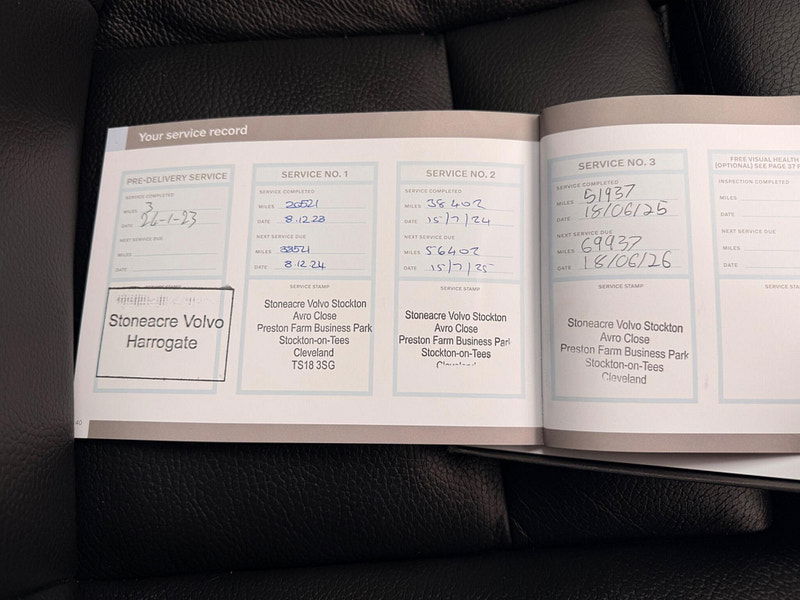 Your service record
PRE-DELIVERY SERVICE
SERVICE COMPLETED
MILES 3
DATE 26-1-23
NEXT SERVICE DUE
MILES
DATE
SERVICE STAMP
Stoneacre Volvo
Harrogate
SERVICE NO. 1
SERVICE COMPLETED
MILES 20521
DATE 8.12.23
NEXT SERVICE DUE
MILES 38521
DATE 8.12.24
SERVICE STAMP
Stoneacre Volvo Stockton
Avro Close
Preston Farm Business Park
Stockton-on-Tees
Cleveland
TS18 3SG
SERVICE NO. 2
SERVICE COMPLETED
MILES 38402
DATE 15/7/24
NEXT SERVICE DUE
MILES 56402
DATE 15/7/25
SERVICE STAMP
Stoneacre Volvo Stockton
Avro Close
Preston Farm Business Park
Stockton-on-Tees
Cleveland
40
SERVICE NO. 3
SERVICE COMPLETED
MILES 51937
DATE 18/06/25
NEXT SERVICE DUE
MILES 69937
DATE 18/06/26
SERVICE STAMP
Stoneacre Volvo Stockton
Avro Close
Preston Farm Business Park
Stockton-on-Tees
Cleveland
FREE VISUAL HEALTH
(OPTIONAL) SEE PAGE 37
INSPECTION COMPLETED
MILES
DATE
NEXT SERVICE DUE
MILES
DATE
SERVICE STAMP